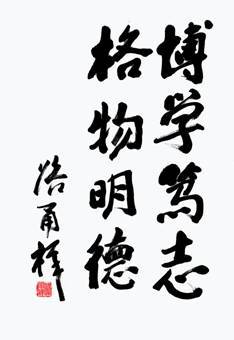 博学笃志
格物明德
路甬祥